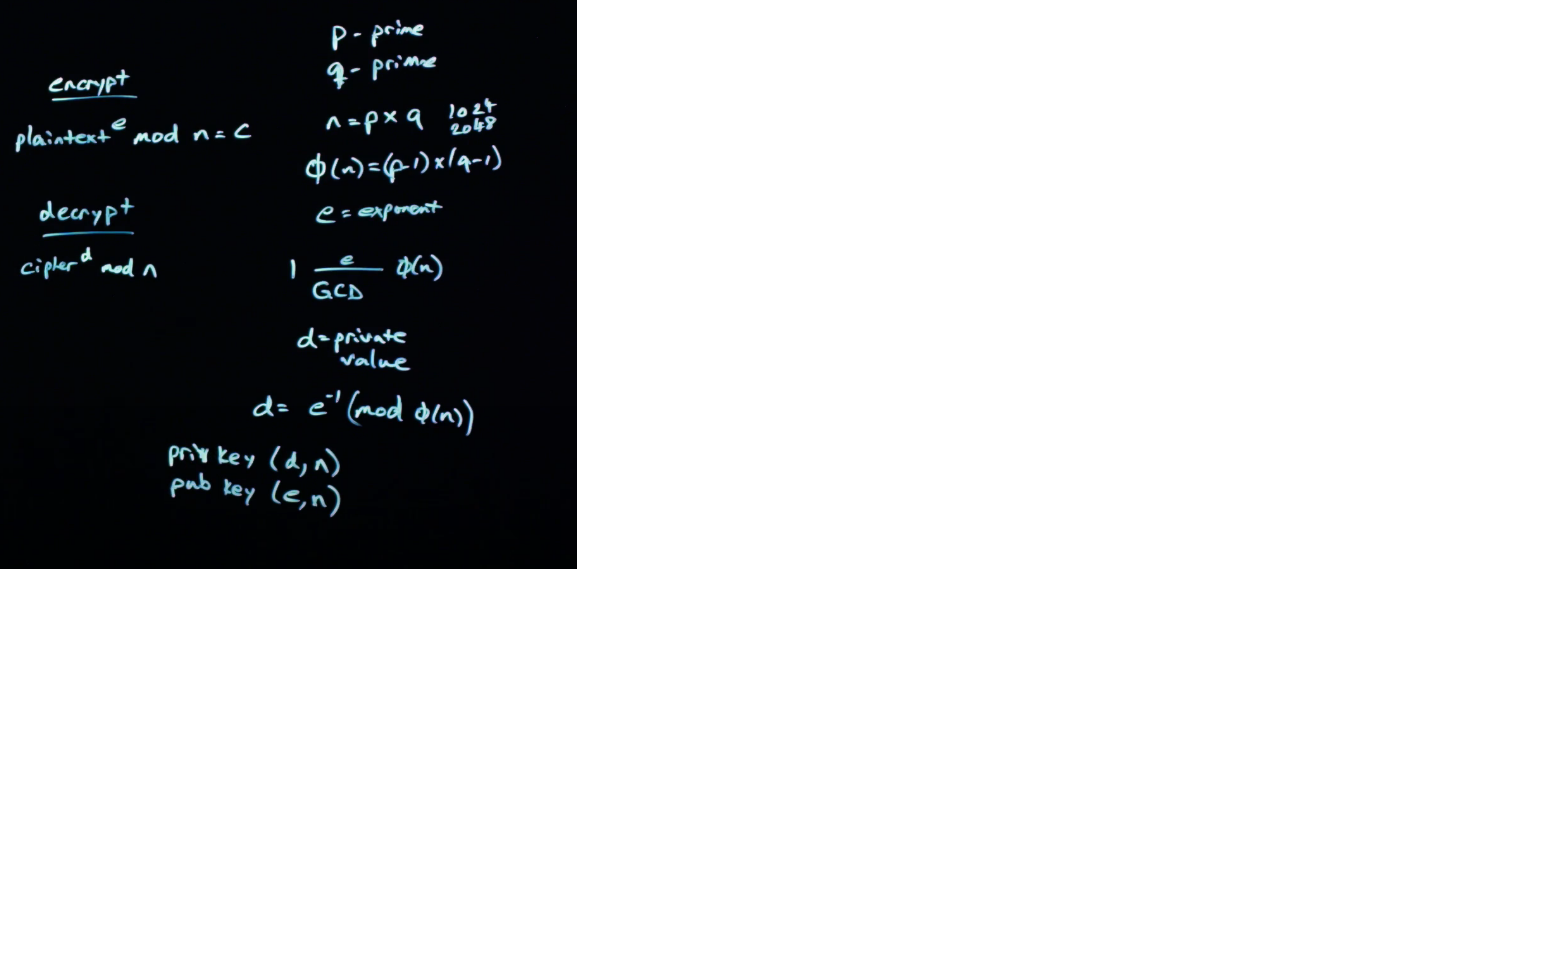 encrypt
plaintext^e mod n = C
decrypt
cipher^d mod n
p - prime
q - prime
n = p × q 1024
2048
ϕ(n) = (p-1) × (q-1)
e = exponent
1 e ϕ(n)
GCD
d = private
value
d = e^-1 (mod ϕ(n))
priv key (d, n)
pub key (e, n)